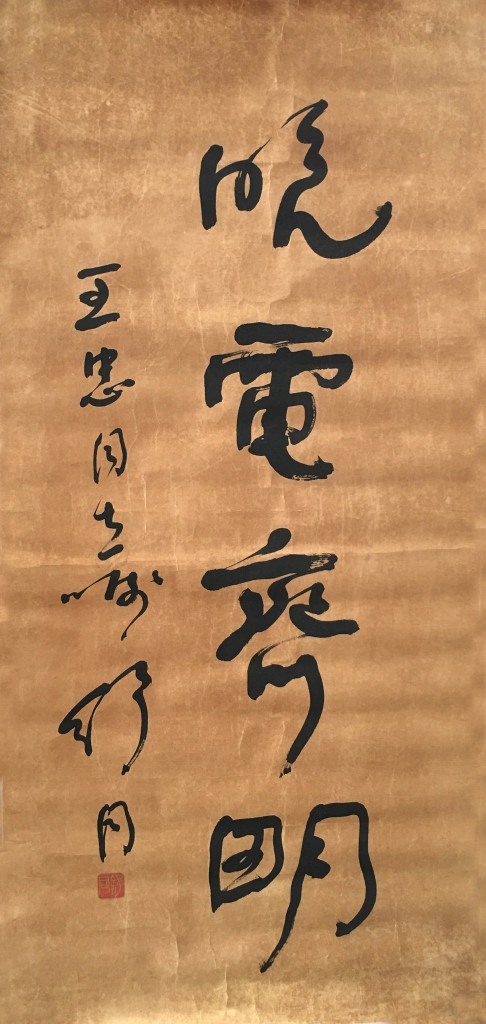 晓電齊明
王忠同志嘱 舒同